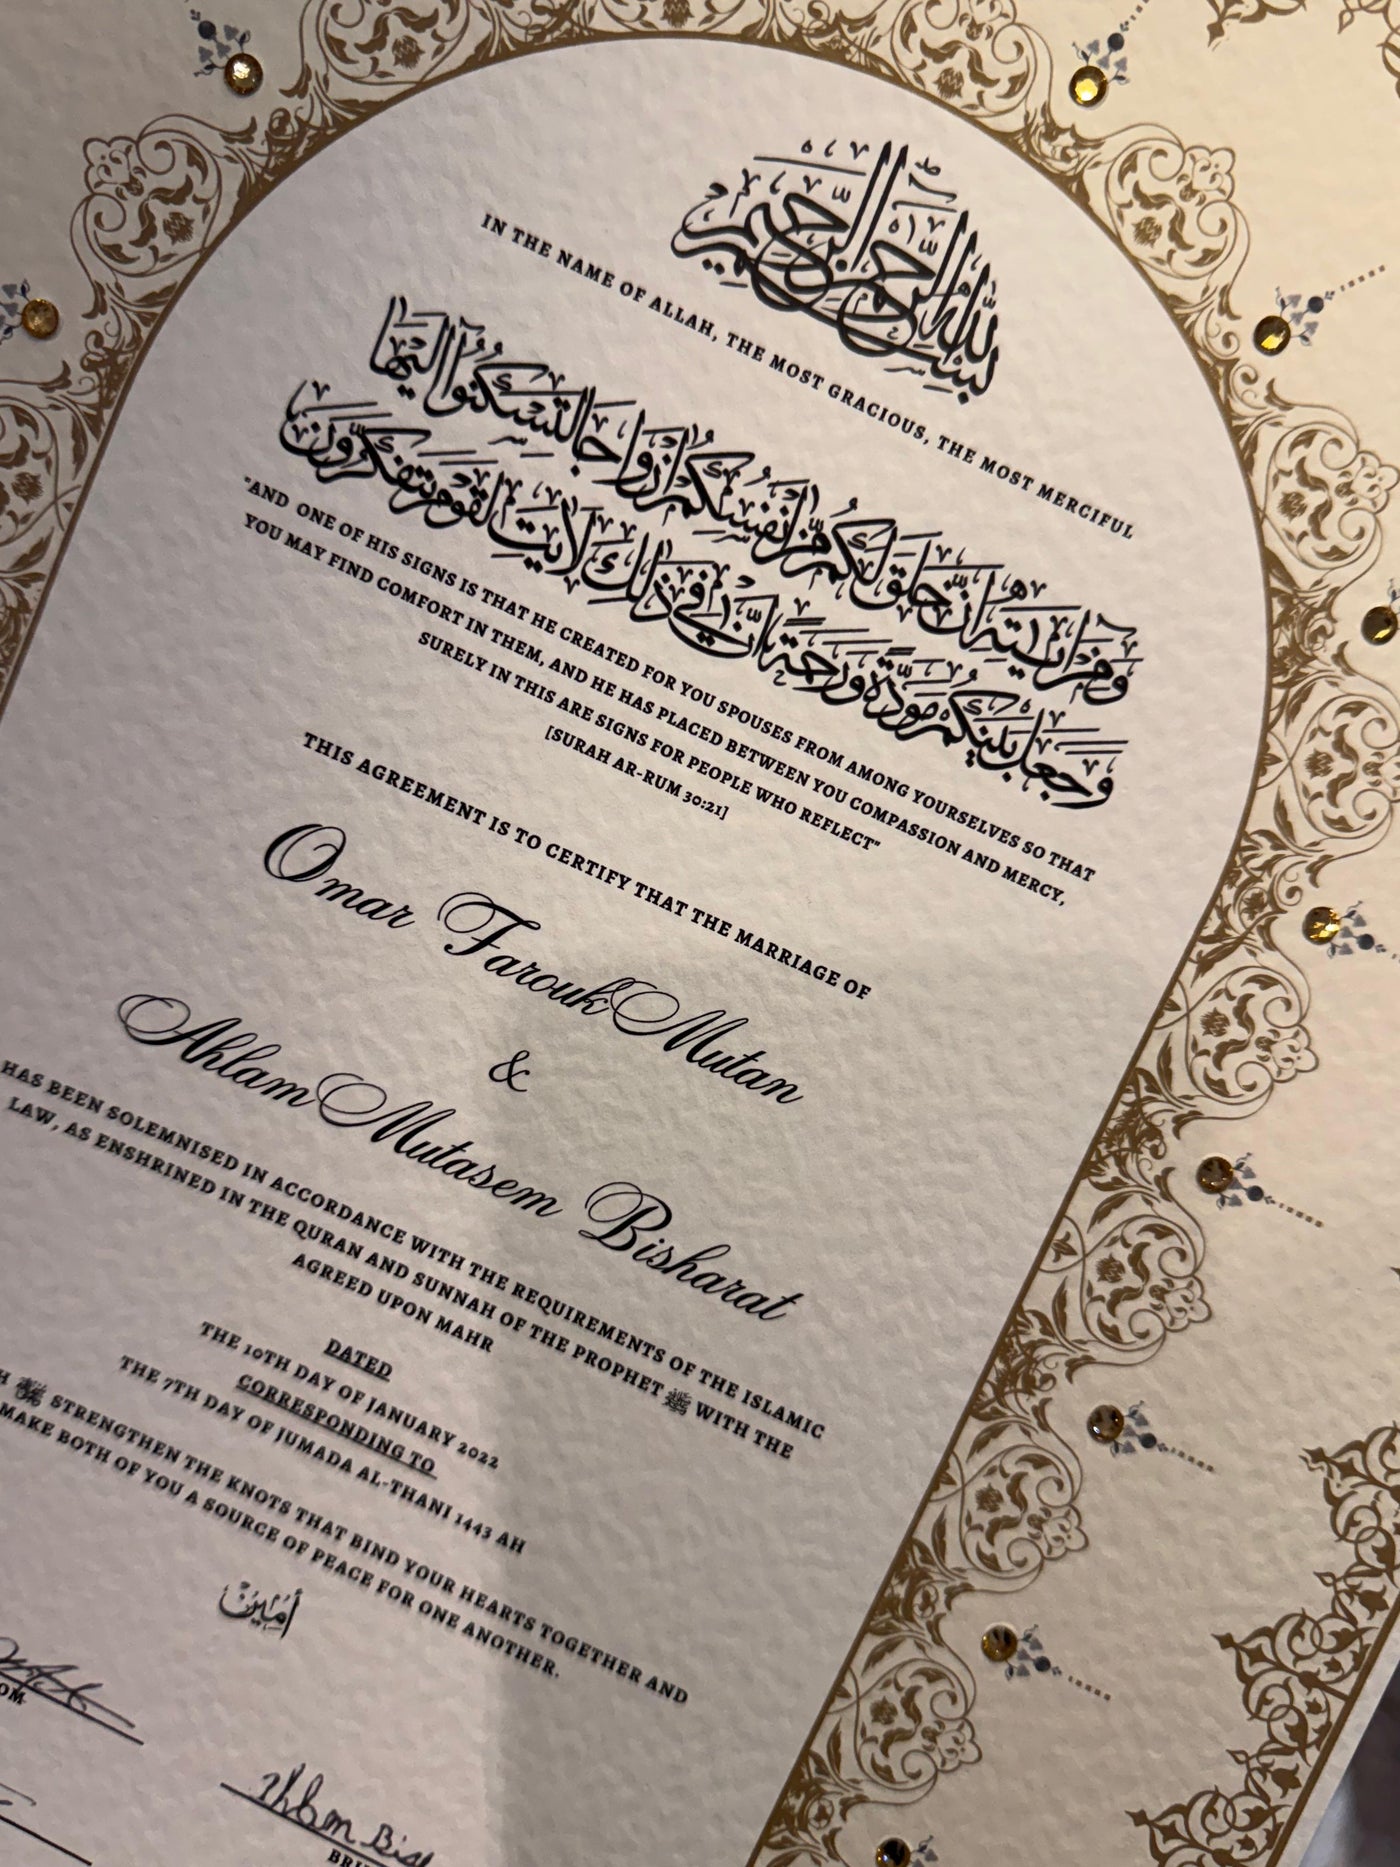 بِسْمِ اللَّهِ الرَّحْمَٰنِ الرَّحِيمِ
IN THE NAME OF ALLAH, THE MOST GRACIOUS, THE MOST MERCIFUL
وَمِنْ آيَاتِهِ أَنْ خَلَقَ لَكُمْ مِنْ أَنْفُسِكُمْ أَزْوَاجًا لِتَسْكُنُوا إِلَيْهَا
وَجَعَلَ بَيْنَكُمْ مَوَدَّةً وَرَحْمَةً إِنَّ فِي ذَٰلِكَ لَآيَاتٍ لِقَوْمٍ يَتَفَكَّرُونَ
"AND ONE OF HIS SIGNS IS THAT HE CREATED FOR YOU SPOUSES FROM AMONG YOURSELVES SO THAT
YOU MAY FIND COMFORT IN THEM, AND HE HAS PLACED BETWEEN YOU COMPASSION AND MERCY,
SURELY IN THIS ARE SIGNS FOR PEOPLE WHO REFLECT"
[SURAH AR-RUM 30:21]
THIS AGREEMENT IS TO CERTIFY THAT THE MARRIAGE OF
Omar Farouk Mutan
&
Ahlam Mutasem Bisharat
HAS BEEN SOLEMNISED IN ACCORDANCE WITH THE REQUIREMENTS OF THE ISLAMIC
LAW, AS ENSHRINED IN THE QURAN AND SUNNAH OF THE PROPHET ﷺ WITH THE
AGREED UPON MAHR
DATED
THE 10TH DAY OF JANUARY 2022
CORRESPONDING TO
THE 7TH DAY OF JUMADA AL-THANI 1443 AH
STRENGTHEN THE KNOTS THAT BIND YOUR HEARTS TOGETHER AND
MAKE BOTH OF YOU A SOURCE OF PEACE FOR ONE ANOTHER.
آمِيْن
Ahlam